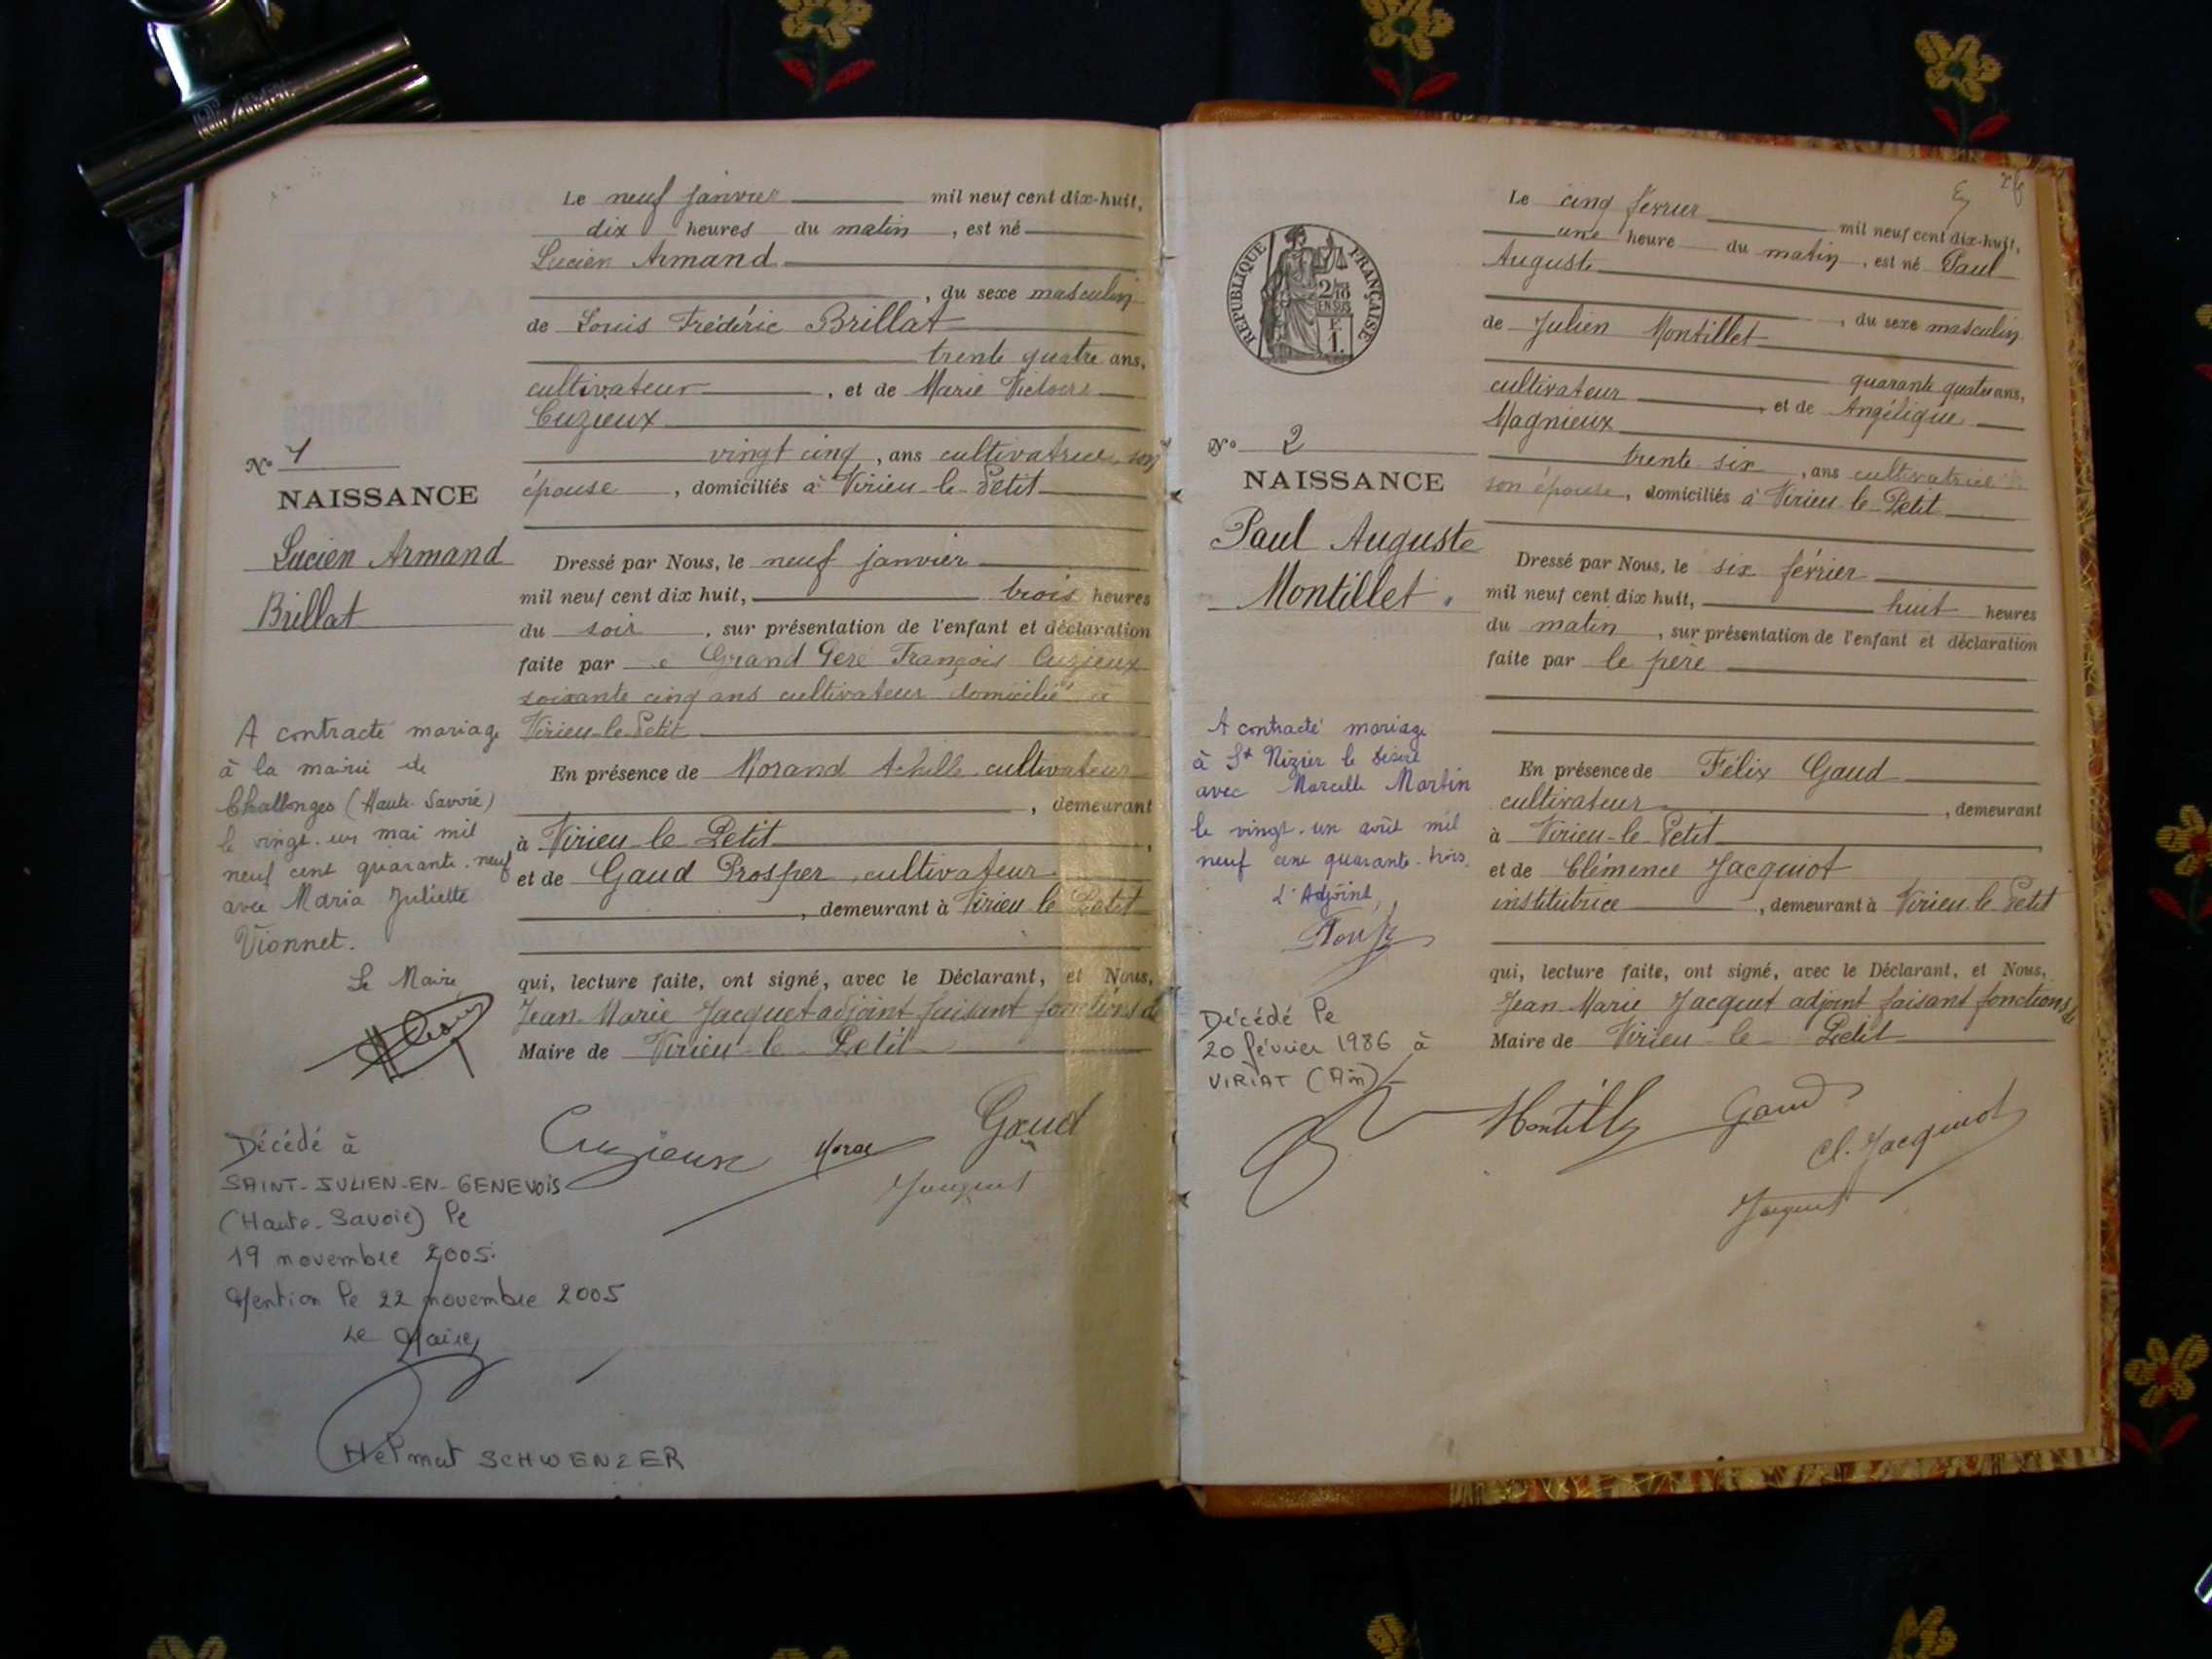 Le neuf janvier mil neuf cent dix-huit,
dix heures du matin, est né
Lucien Armand
, du sexe masculin
de Louis Frédéric Brillat
trente quatre ans,
cultivateur, et de Marie Victoire
Cuzieux
vingt cinq, ans cultivatrice, son
épouse, domiciliés à Virieu-le-Petit
N° 1
NAISSANCE
Lucien Armand
Brillat
Dressé par Nous, le neuf janvier
mil neuf cent dix huit, trois heures
du soir, sur présentation de l'enfant et déclaration
faite par le Grand Père François Cuzieux
soixante cinq ans cultivateur domicilié à
Virieu-le-Petit
En présence de Morand Achille cultivateur
, demeurant
à Virieu-le-Petit,
et de Gaud Prosper, cultivateur
, demeurant à Virieu le Petit
qui, lecture faite, ont signé, avec le Déclarant, et Nous,
Jean-Marie Jacquet adjoint faisant fonctions de
Maire de Virieu-le-Petit
Cuzieux Morand Gaud
Jacquet
A contracté mariage
à la mairie de
Challonges (Haute-Savoie)
le vingt-un mai mil
neuf cent quarante-neuf
avec Maria Juliette
Vionnet.
Le Maire
Décédé à
SAINT-JULIEN-EN-GENEVOIS
(Haute-Savoie) le
19 novembre 2005.
Mention le 22 novembre 2005
Le Maire,
Helmut SCHWENZER
Le cinq février mil neuf cent dix-huit,
une heure du matin, est né Paul
Auguste
, du sexe masculin
de Julien Montillet
quarante quatre ans,
cultivateur, et de Angélique
Magnieux
trente-six, ans cultivatrice
son épouse, domiciliés à Virieu-le-Petit
REPUBLIQUE FRANÇAISE
2/10
EN SUS
F.
1.
N° 2
NAISSANCE
Paul Auguste
Montillet.
Dressé par Nous, le six février
mil neuf cent dix huit, huit heures
du matin, sur présentation de l'enfant et déclaration
faite par le père
En présence de Félix Gaud
cultivateur, demeurant
à Virieu-le-Petit
et de Clémence Jacquiot
institutrice, demeurant à Virieu-le-Petit
qui, lecture faite, ont signé, avec le Déclarant, et Nous,
Jean-Marie Jacquet adjoint faisant fonctions de
Maire de Virieu-le-Petit
Montillet Gaud
Cl. Jacquiot
Jacquet
A contracté mariage
à St Nizier le Désert
avec Marcelle Martin
le vingt-un août mil
neuf cent quarante-trois.
L'Adjoint,
Décédé le
20 février 1986 à
VIRIAT (Ain)